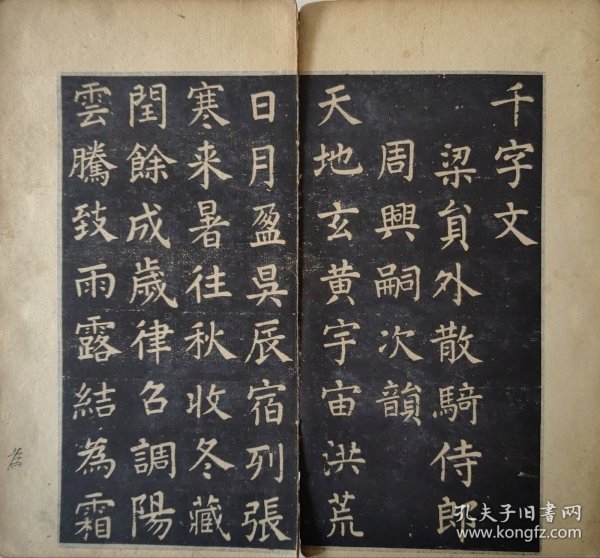 千字文
梁貟外散騎侍郎
周興嗣次韻
天地玄黃宇宙洪荒
日月盈昃辰宿列張
寒来暑往秋收冬藏
閏餘成歲律召調陽
雲騰致雨露結為霜
孔夫子旧书网
www.kongfz.com